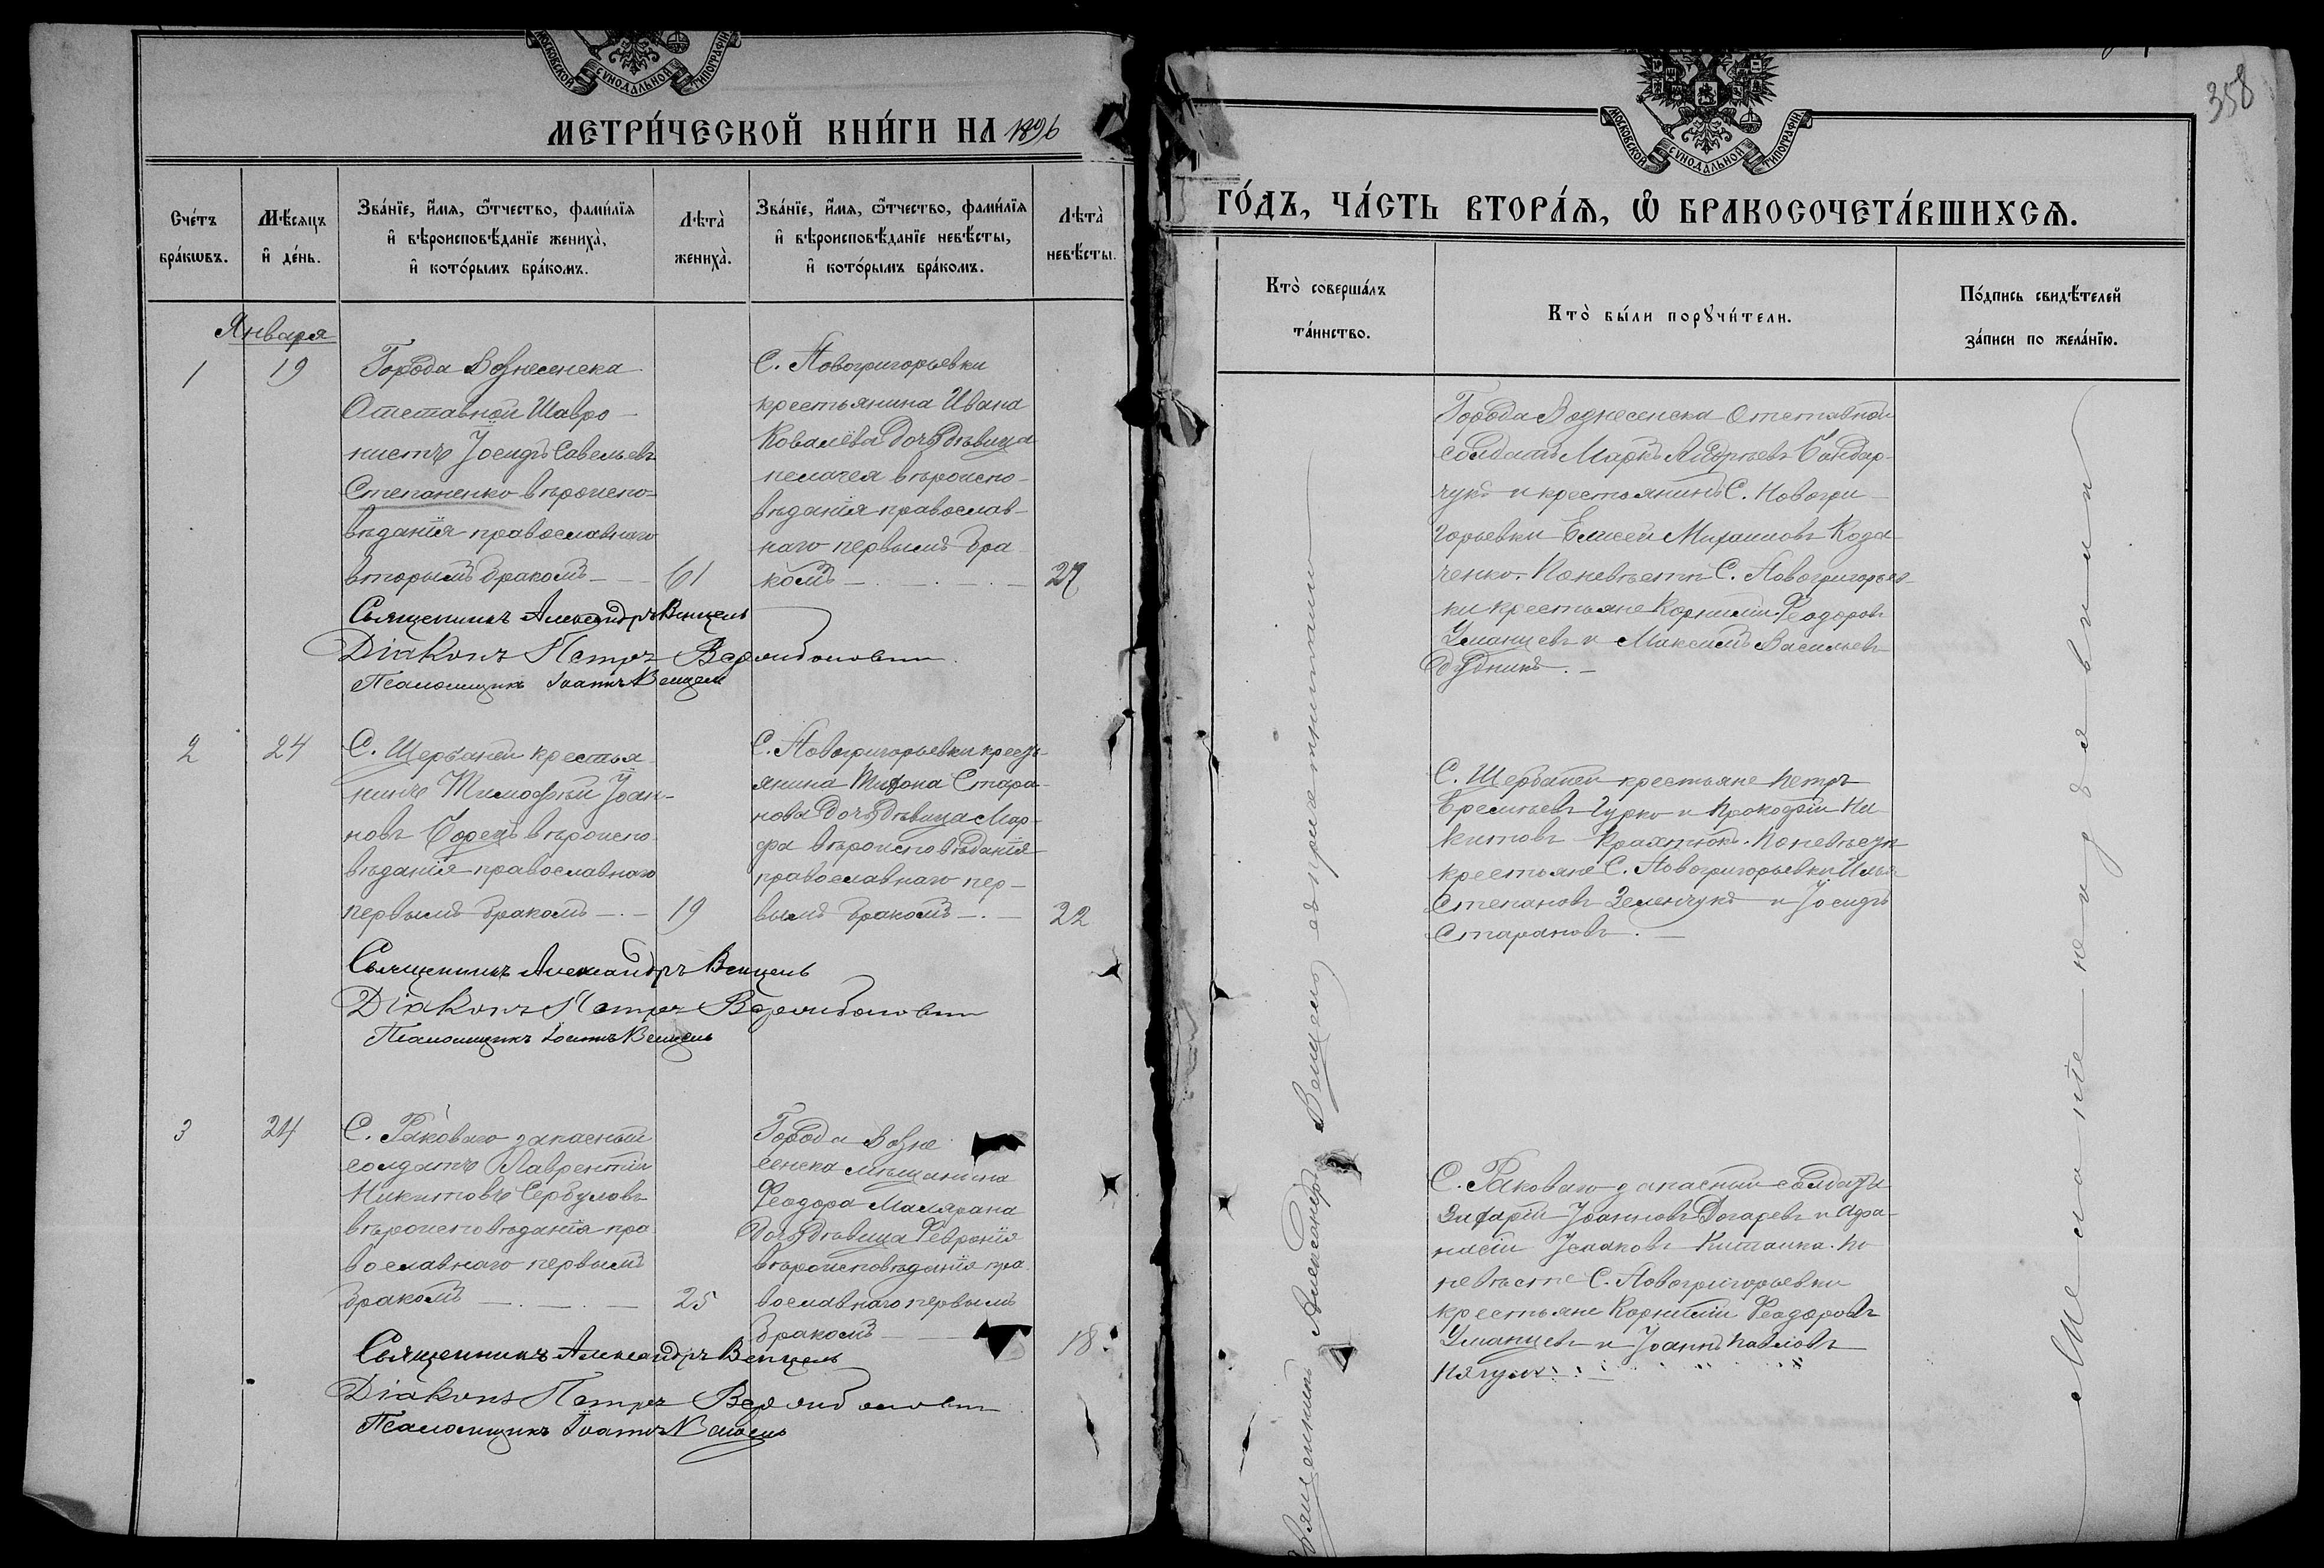 МОСКОВСКОЙ СѴНОДАЛЬНОЙ ТИПОГРАФІИ
МЕТРИ́ЧЕСКОЙ КНИ́ГИ НА 1896
Сче́тъ
бра́кѡвъ.
Мѣ́сяцъ
и҆ де́нь.
Зва́нїе, и҆́мѧ, ѻ҆́тчество, фами́лїѧ
и҆ вѣроисповѣ́данїе жениха̀,
и҆ кото́рымъ бра́комъ.
Лѣта̀
жениха̀.
Зва́нїе, и҆́мѧ, ѻ҆́тчество, фами́лїѧ
и҆ вѣроисповѣ́данїе невѣ́сты,
и҆ кото́рымъ бра́комъ.
Лѣта̀
невѣ́сты.
Января
1
19
Города Вознесенска
Отставной
нистъ Іосифъ Савельевъ
Степаненко вѣроиспо-
вѣданія православнаго
вторымъ бракомъ
61
С. Новогригорьевки
крестьянина Ивана
Ковалёва дочь дѣвица
Пелагея вѣроиспо-
вѣданія православ-
наго первымъ бра-
комъ
27
Священникъ Александръ Венцель
Діаконъ Петръ
Псаломщикъ Іоаннъ Венцель
2
24
С. Щербаней крестья-
нинъ Тимофей Іоан-
новъ вѣроиспо-
вѣданія православнаго
первымъ бракомъ
19
С. Новогригорьевки кресть-
янина Тифона Стара-
нова дочь дѣвица Мар-
фа вѣроисповѣданія
православнаго пер-
вымъ бракомъ
22
Священникъ Александръ Венцель
Діаконъ Петръ
Псаломщикъ Іоаннъ Венцель
3
24
С. Раковаго запасный
солдатъ Лаврентій
Никитовъ Сербуловъ
вѣроисповѣданія пра-
вославнаго первымъ
бракомъ
25
Города Возне-
сенска мѣщанина
Феодора Малярана
дочь дѣвица Февронія
вѣроисповѣданія пра-
вославнаго первымъ
бракомъ
18
Священникъ Александръ Венцель
Діаконъ Петръ
Псаломщикъ Іоаннъ Венцель
358
МОСКОВСКОЙ СѴНОДАЛЬНОЙ ТИПОГРАФІИ
ГО́ДЪ, ЧА́СТЬ ВТОРА́Ѧ, Ѡ҆ БРАКОСОЧЕТА́ВШИХСѦ.
Кто̀ соверша́лъ
та́инство.
Кто̀ бы́ли порꙋчи́тели.
По́дпись свидѣ́телей
за́писи по жела́нїю.
Священникъ Александръ Венцель съ причтомъ
Города Вознесенска отставной
солдатъ Маркъ Андреевъ Бондар-
чукъ и крестьянинъ С. Новогри-
горьевки Елисей Михаиловъ Коза-
ченко. По невѣстѣ С. Новогригорьев-
ки крестьяне Корнилій Феодоровъ
Уманцевъ и Максимъ Васильевъ
Дудникъ.
С. Щербаней крестьяне Петръ
Еремѣевъ Гурко и Прокофій Ни-
китовъ. По невѣстѣ
крестьяне С. Новогригорьевки Илья
Степановъ Зеленчукъ и Іосифъ
Старановъ.
С. Раковаго запасный солдатъ
Іоанновъ Догаревъ и Афа-
насій Исааковъ. По
невѣстѣ С. Новогригорьевки
крестьяне Корнилій Феодоровъ
Уманцевъ и Іоаннъ Павловъ
Желаніе не изъявили